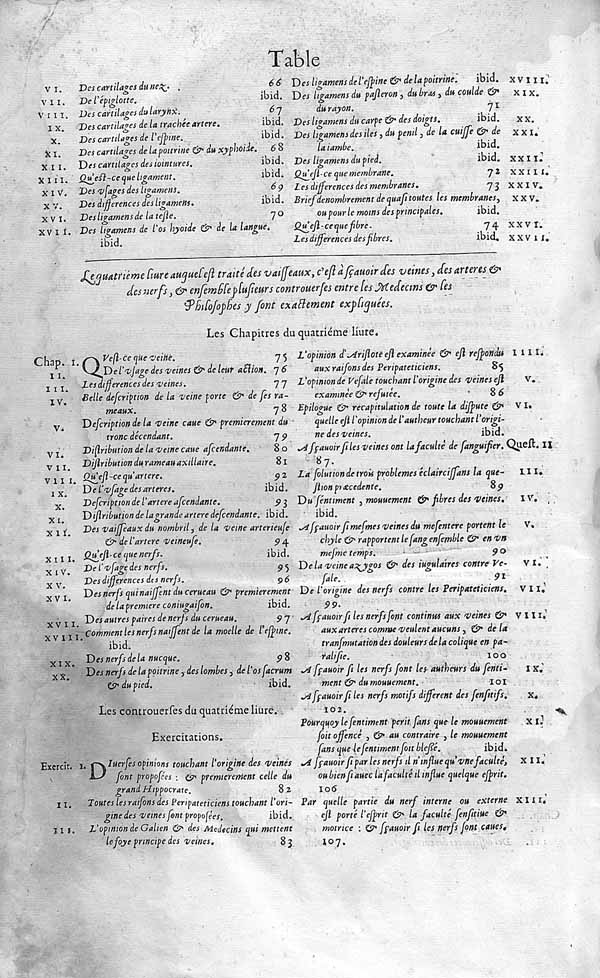 Table
VI. Des cartilages du nez. 66
VII. De l'épiglotte. ibid.
VIII. Des cartilages du larynx. 67
IX. Des cartilages de la trachée artere. ibid.
X. Des cartilages de l'eſpine. ibid.
XI. Des cartilages de la poitrine & du xyphoide. 68
XII. Des cartilages des iointures. ibid.
XIII. Qu'eſt-ce que ligament. ibid.
XIV. Des vſages des ligamens. 69
XV. Des differences des ligamens. ibid.
XVI. Des ligamens de la teſte. 70
XVII. Des ligamens de l'os hyoide & de la langue.
ibid.
Des ligamens de l'eſpine & de la poitrine. ibid. XVIII.
Des ligamens du paſleron, du bras, du coulde & XIX.
du rayon. 71
Des ligamens du carpe & des doigts. ibid. XX.
Des ligamens des iles, du penil, de la cuiſſe & de XXI.
la iambe. ibid.
Des ligamens du pied. ibid. XXII.
Qu'eſt-ce que membrane. 72 XXIII.
Les differences des membranes. 73 XXIV.
Brief denombrement de quaſi toutes les membranes, XXV.
ou pour le moins des principales. ibid.
Qu'eſt-ce que fibre. 74 XXVI.
Les differences des fibres. ibid. XXVII.
Le quatriéme liure auquel eſt traité des vaiſſeaux, c'eſt à ſçauoir des veines, des arteres &
des nerfs, & enſemble pluſieurs controuerſes entre les Medecins & les
Philoſophes y ſont exactement expliquées.
Les Chapitres du quatriéme liure.
Chap. I. QVeſt-ce que veine. 75
II. De l'vſage des veines & de leur action. 76
III. Les differences des veines. 77
IV. Belle deſcription de la veine porte & de ſes ra-
meaux. 78
V. Deſcription de la veine caue & premierement du
tronc décendant. 79
VI. Diſtribution de la veine caue aſcendante. 80
VII. Diſtribution du rameau axillaire. 81
VIII. Qu'eſt-ce qu'artere. 92
IX. De l'vſage des arteres. ibid.
X. Deſcription de l'artere aſcendante. 93
XI. Diſtribution de la grande artere deſcendante. ibid.
XII. Des vaiſſeaux du nombril, de la veine arterieuſe
& de l'artere veineuſe. 94
XIII. Qu'eſt-ce que nerfs. ibid.
XIV. De l'vſage des nerfs. 95
XV. Des differences des nerfs. 96
XVI. Des nerfs qui naiſſent du cerueau & premierement
de la premiere coniugaiſon. ibid.
XVII. Des autres paires de nerfs du cerueau. 97
XVIII. Comment les nerfs naiſſent de la moelle de l'eſpine.
ibid.
XIX. Des nerfs de la nucque. 98
XX. Des nerfs de la poitrine, des lombes, de l'os ſacrum
& du pied. ibid.
Les controuerſes du quatriéme liure.
Exercitations.
Exercit. I. DIuerſes opinions touchant l'origine des veines
ſont propoſées : & premierement celle du
grand Hippocrate. 82
II. Toutes les raiſons des Peripateticiens touchant l'ori-
gine des veines ſont propoſées. ibid.
III. L'opinion de Galien & des Medecins qui mettent
le foye principe des veines. 83
L'opinion d'Ariſtote eſt examinée & eſt reſpondu IIII.
aux raiſons des Peripateticiens. 85
L'opinion de Veſale touchant l'origine des veines eſt V.
examinée & refutée. 86
Epilogue & recapitulation de toute la diſpute & VI.
quelle eſt l'opinion de l'autheur touchant l'origi-
ne des veines. ibid.
A ſſçauoir ſi les veines ont la faculté de ſanguifier. Queſt. II
87.
La ſolution de trois problemes éclairciſſans la que- III.
ſtion præcedente. 89
Du ſentiment, mouuement & fibres des veines. IV.
ibid.
A ſſçauoir ſi meſmes veines du meſentere portent le V.
chyle & rapportent le ſang enſemble & en vn
meſme temps. 90
De la veine azygos & des iugulaires contre Ve- VI.
ſale. 91
De l'origine des nerfs contre les Peripateticiens. VII.
99.
A ſſçauoir ſi les nerfs ſont continus aux veines & VIII.
aux arteres comme veulent aucuns, & de la
tranſmutation des douleurs de la colique en pa-
raliſie. 100
A ſſçauoir ſi les nerfs ſont les autheurs du ſenti- IX.
ment & du mouuement. 101
A ſſçauoir ſi les nerfs motifs different des ſenſitifs. X.
102.
Pourquoy le ſentiment perit ſans que le mouuement XI.
ſoit offencé, & au contraire, le mouuement
ſans que le ſentiment ſoit bleſſé. ibid.
A ſſçauoir ſi par les nerfs il n'influe qu'vne faculté, XII.
ou bien ſi auec la faculté il influe quelque eſprit.
106
Par quelle partie du nerf interne ou externe XIII.
eſt porté l'eſprit & la faculté ſenſitiue &
motrice : & ſçauoir ſi les nerfs ſont caues.
107.